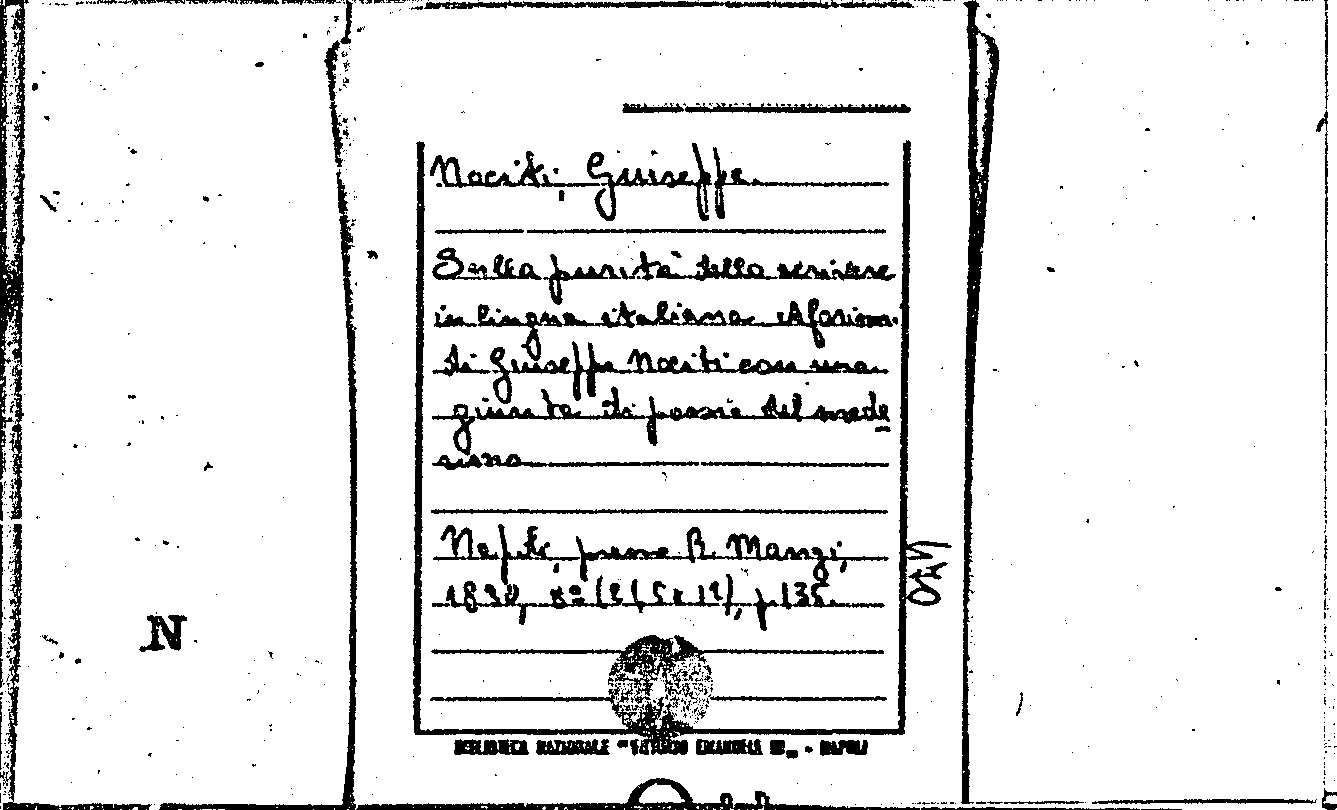 Nociti, Giuseppe.
Sulla purità dello scrivere
in lingua italiana. Aforism.
di Giuseppe Nociti con una
giunta di poesie del mede
simo
Napoli, presso R. Manzi,
1830, 8º (21,5x12), p. 135.
N
BIBLIOTECA NAZIONALE "VITTORIO EMANUELE III" - NAPOLI